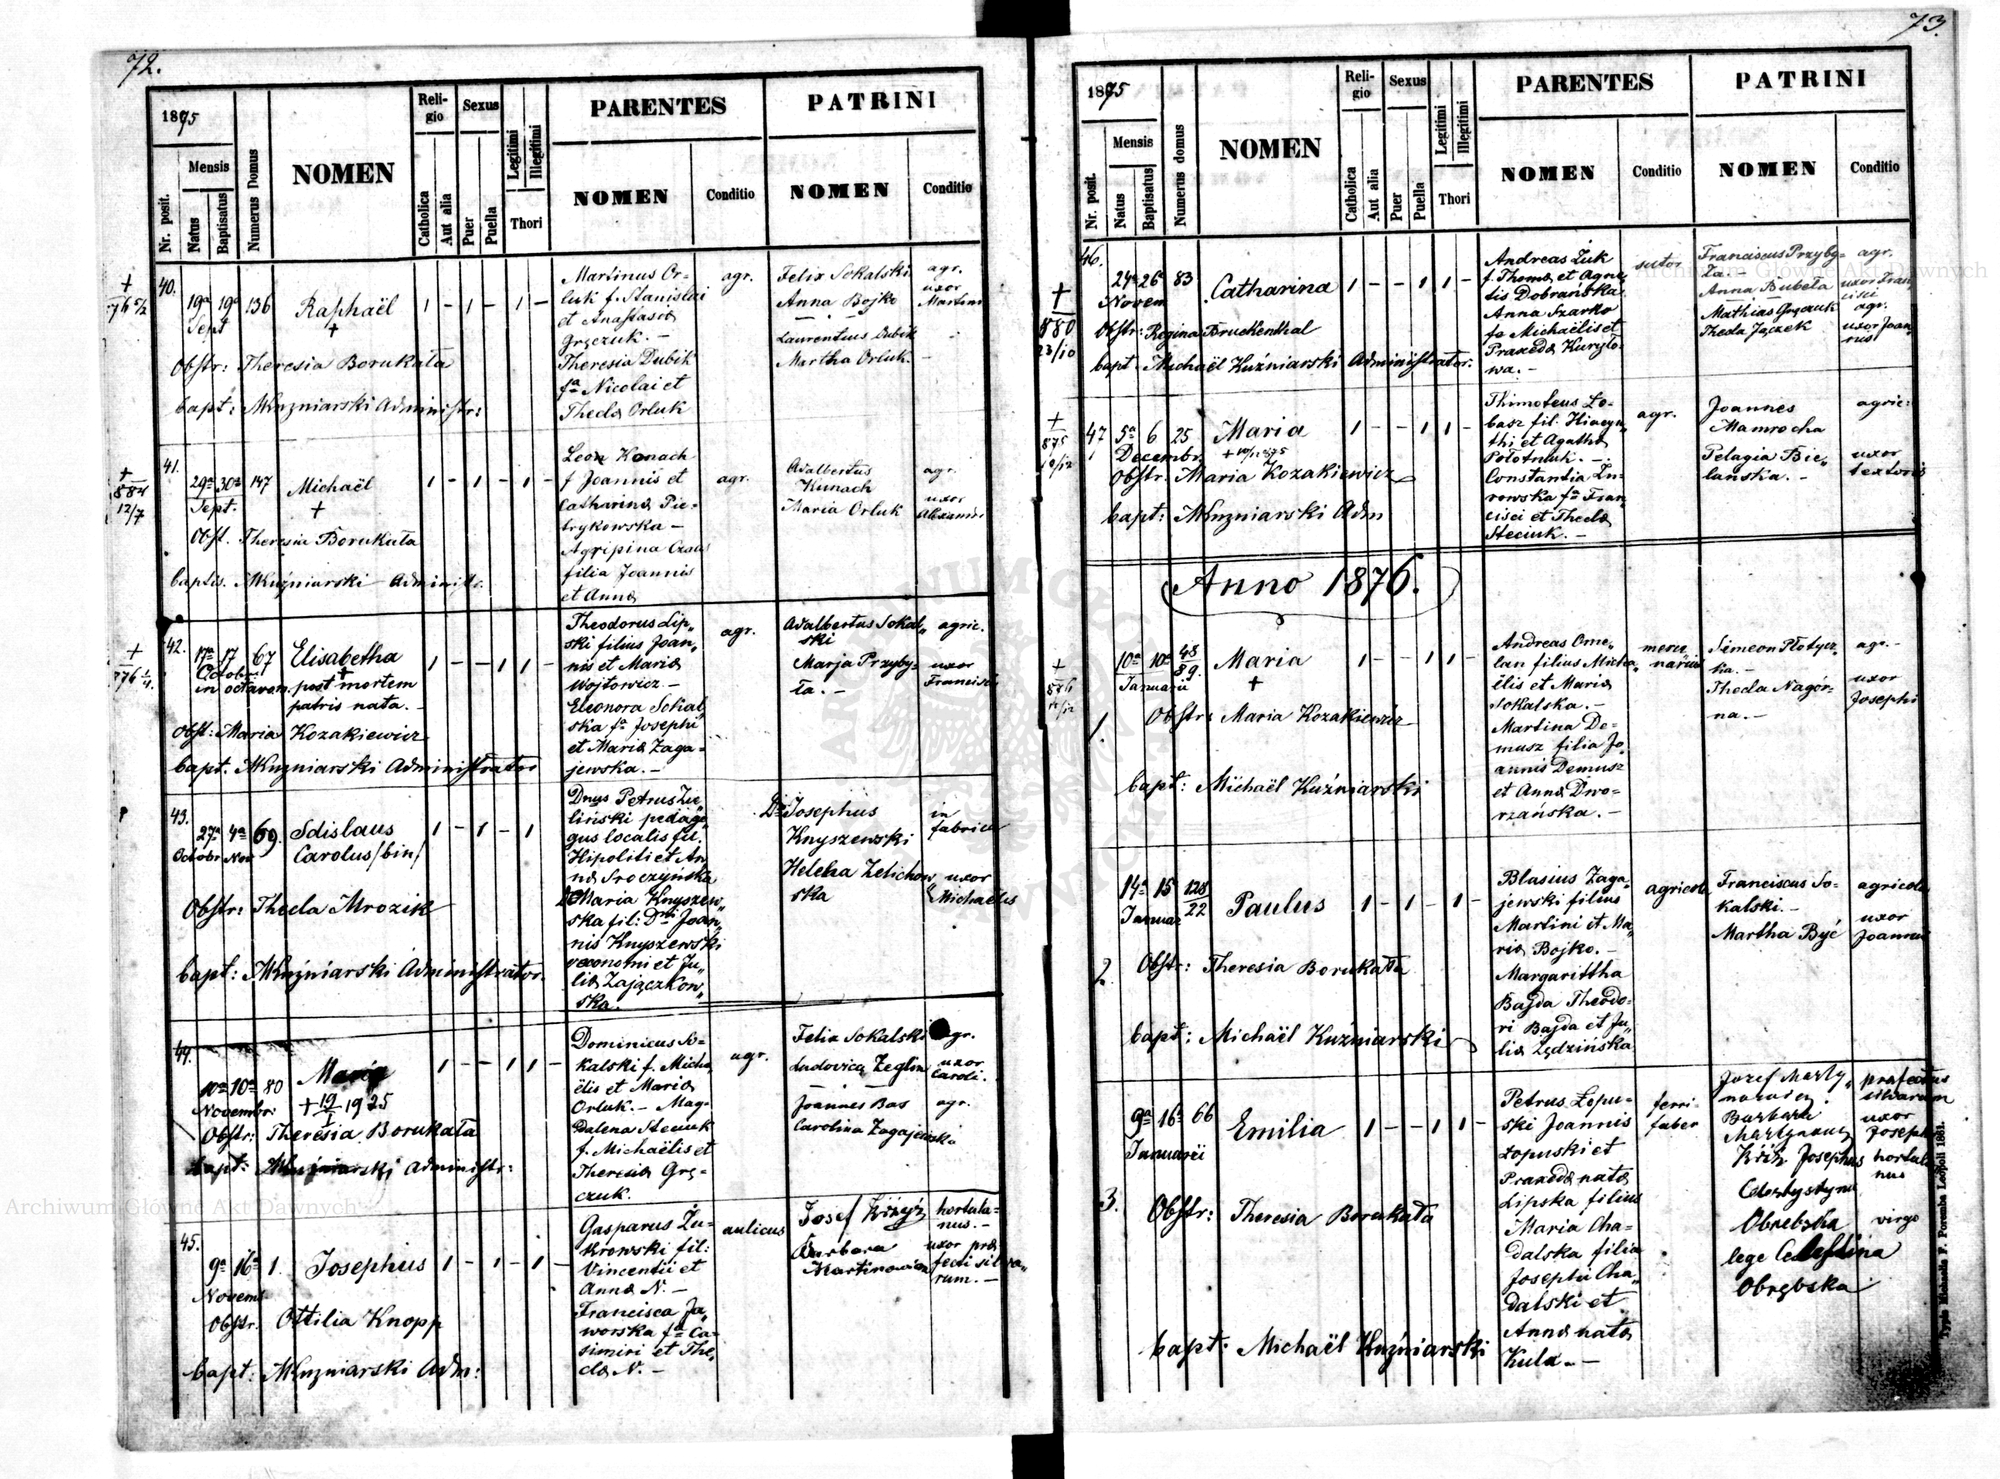 72.
1875
Nr. posit.
Mensis
Natus
Baptisatus
Numerus Domus
NOMEN
Reli-
gio
Catholica
Aut alia
Sexus
Puer
Puella
Legitimi
Illegitimi
Thori
PARENTES
NOMEN
Conditio
PATRINI
NOMEN
Conditio
40.
19a 19a 136
Sept
Raphaël
+
1 - 1 - 1 -
Obstr: Theresia Borukała
bapt: MKuzniarski Administr:
Martinus Or-
luk f. Stanislai
et Anastasia
Gręczuk. -
Theresia Dubik
fa Nicolai et
Thecla Orluk
agr.
Felix Sokalski
Anna Bojko
Laurentius Dubik
Martha Orluk
agr.
uxor
Martini
41.
+
12/7
29a 30a 147
Sept.
Michaël
+
1 - 1 - 1 -
Obst. Theresia Borukała
baptis. MKuźniarski Administr.
Leon Konach
f Joannis et
Catharina Pie-
trykowska -
Agripina
filia Joannis
et Anna
agr.
Adalbertus
Kunach
Maria Orluk
agr.
uxor
Alexandri
42.
+
17a 17 67
Octobr
Elisabetha
+
in octavam post mortem
patris nata. -
1 - - 1 1 -
Obst: Maria Kozakiewicz
bapt. MKuzniarski Administrator
Theodorus Lip„
ski filius Joan„
nis et Maria
Wojtowicz. -
Eleonora Sokal„
ska fa Josephi
et Maria Zaga-
jewska. -
agr.
Adalbertus Sokal„
ski
Marja Przyby-
ła. -
agric.
uxor
Francisci
43.
27a 4a 69.
Octobr Nov
Sdislaus
Carolus /bin/
1 - 1 - 1
Obstr: Thecla Mrozik
bapt: MKuźniarski Administrator.
Dnus Petrus Zie„
liński pedago„
gus localis fil.
Hipoliti et An„
na Sroczyńska
Maria Knyszew„
ska fil: Dni Joan„
nis Knyszewski
oeconomi et Ju„
lia Zajączkow„
ska.
Josephus
Knyszewski
Helena Zelichow
ska
in
fabrica
uxor
Michaëlis
44.
10a 10a 80
Novembr.
Maria
+ 19/1 1925
1 - - 1 1 -
Obstr: Theresia Borukała
bapt: MKuźniarski Administr:
Dominicus So-
kalski f. Micha
ëlis et Maria
Orluk. - Mag-
dalena Steciuk
f. Michaëlis et
Theresia Grę-
czuk.
agr.
Felix Sokalski
Ludovica Zeglin
Joannes Bas
Carolina Zagajewska
agr.
uxor
Caroli.
agr.
45.
9a 16a 1.
Novemb
Josephus
1 - 1 - 1 -
Obstr. Ottilia Knopp
bapt: MKuzniarski Adm:
Gasparus Żu-
krowski fil:
Vincentii et
Anna N. -
Francisca Ja„
worska fa Ca-
simiri et The„
cla N. -
aulicus
Josef Křiž
Barbara
Martinowicz
hortula-
nus. -
uxor præ
fecti silva„
rum. -
73.
1875
Nr. posit.
Mensis
Natus
Baptisatus
Numerus domus
NOMEN
Reli-
gio
Catholica
Aut alia
Sexus
Puer
Puella
Legitimi
Illegitimi
Thori
PARENTES
NOMEN
Conditio
PATRINI
NOMEN
Conditio
46.
+
880
23/10
24a 26a 83
Novem
Catharina
1 - - 1 1 -
Obstr: Regina Bruckenthal
bapt. Michaël Kuźniarski Administrator.
Andreas Żuk
f. Thoma et Agne„
tis Dobrańska
Anna Szarko
fa Michaëlis et
Praxeda Kuryło-
wa. -
sutor
Franciscus Przyby-
ła -
Anna Bubela
Mathias Gręczuk
Thecla Jączek
agr.
uxor Fran„
cisci
agr.
uxor Joan„
nis
47
+
875
10/12
5a 6 25
Decembr.
Maria
+ 10/12 875
1 - - 1 1 -
Obstr. Maria Kozakiewicz
bapt: MKuzniarski Adm
Thimoteus Ło-
basz fil. Hiacyn„
thi et Agatha
Połotniuk. -
Constantia Żu-
rowska fa Fran„
cisci et Thecla
Steciuk. -
agr.
Joannes
Mamrocha
Pelagia Bie„
lańska. -
agric:
uxor
textoris
Anno 1876.
1.
+
876
10a 10a 48/89
Januarii
Maria
+
1 - - 1 1 -
Obstr: Maria Kozakiewicz
bapt: Michaël Kuźniarski
Andreas Ome„
lan filius Micha„
ëlis et Maria
Sokalska. -
Martina De-
musz filia Jo„
annis Demusz
et Anna Dwo-
rzańska. -
merce„
narius
Simeon Płotycz„
ka. -
Thecla Nagór-
na. -
agr. -
uxor
Josephi
2.
14a 15 128/22
Januar
Paulus
1 - 1 - 1 -
Obstr: Theresia Borukała
bapt: Michaël Kuźniarski
Blasius Zaga-
jewski filius
Martini et Ma„
ria Bojko. -
Margarittha
Bajda Theodo-
ri Bajda et Ju„
lia Zędzińska
agricola
Franciscus So-
kalski. -
Martha Być
agricola
uxor
Joannis
3.
9a 16a 66
Januarii
Emilia
1 - - 1 1 -
Obstr: Theresia Borukała
bapt: Michaël Kuźniarski
Petrus Łopu-
ski Joannis
Łopuski et
Praxeda nata
Lipska filius
Maria Cha-
dalska filia
Josephi Cha„
dalski et
Anna nata
Kula. -
ferri-
faber
Jozef Marty„
Barbara
Křiž Josephus
Obrębska
lege Celestina
Obrębska
prafectus
silvarum
uxor
Josephi
hortula
nus
virgo
Typis Michaelis F. Poremba Leopoli 1861.
Archiwum Główne Akt Dawnych
Archiwum Główne Akt Dawnych
ARCHIWUM GŁÓWNE AKT DAWNYCH